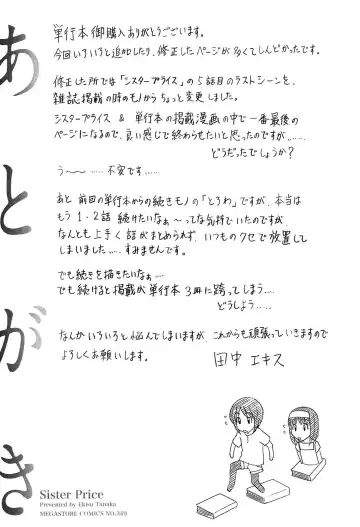 あとがき
単行本御購入ありがとうございます。
今回いろいろと追加したり、修正したページが多くてしんどかったです。
修正した所では「シスタープライス」の5話目のラストシーンを、
雑誌掲載の時のモノからちょっと変更しました。
シスタープライス & 単行本の掲載漫画の中で一番最後の
ページになるので、良い感じで終わらせたいと思ったのですが……
どうだったでしょうか?
う〜〜……不安です……
あと前回の単行本からの続きモノの「とらわ」ですが、本当は
もう1・2話続けたいなぁ〜ってな気持でいたのですが、
なんとも上手く話がまとめらず、いつものクセで放置して
しまいました……すみませんです。
でも続きを描きたいなぁ……
でも続けると掲載が単行本3冊に跨ってしまう……
どうしよう……
なんかいろいろと悩んでしまいますが、これからも頑張っていきますので
よろしくお願いします。
田中エキス
Sister Price
Presented by Ekisu Tanaka
MEGASTORE COMICS NO.349